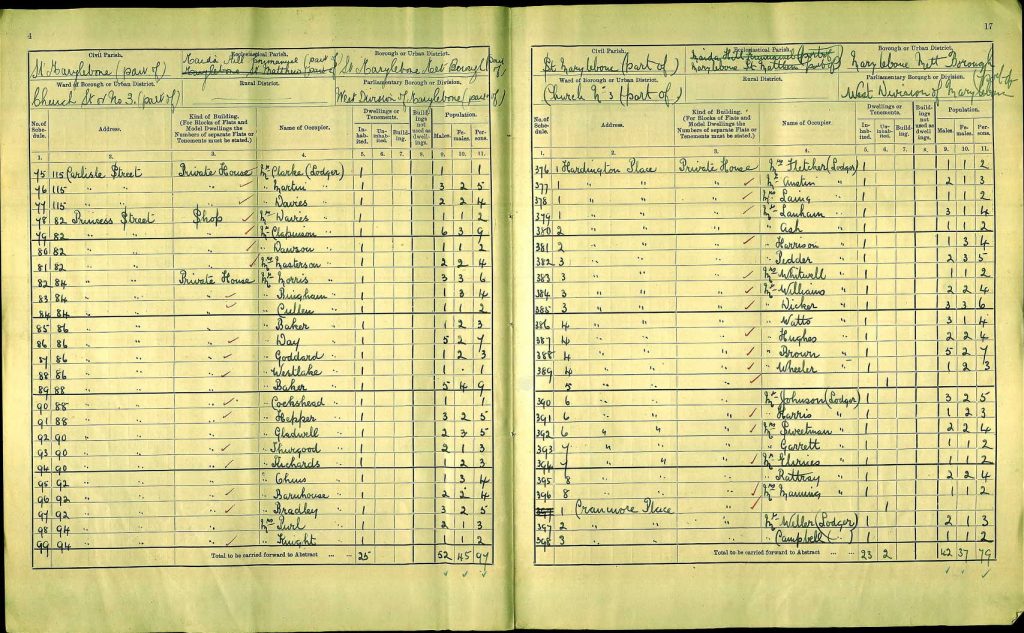 4
Civil Parish.
Ecclesiastical Parish.
Borough or Urban District.
St Marylebone (part of)
Maida Hill Emmanuel (part of)
Marylebone St Matthew (part of)
St Marylebone Met Borough (part of)
Ward of Borough or Urban District.
Rural District.
Parliamentary Borough or Division.
Church St or No 3. (part of)
West Division of Marylebone (part of)
No. of Schedule.
Address.
Kind of Building.
(For Blocks of Flats and Model Dwellings the Numbers of separate Flats or Tenements must be stated.)
Name of Occupier.
Dwellings or Tenements.
Inhabited.
Uninhabited.
Building.
Buildings not used as dwellings.
Population.
Males.
Females.
Persons.
1. 2. 3. 4. 5. 6. 7. 8. 9. 10. 11.
75 115 Carlisle Street Private House Mr Clarke (Lodger) 1 1 1
76 115 " " " " Martin " 1 3 2 5
77 115 " " " " Davies " 1 2 2 4
78 82 Princess Street Shop Mr Davies 1 1 1 2
79 82 " " " Mr Clapinson 1 6 3 9
80 82 " " " " Dawson " 1 1 1 2
81 82 " " " Mrs Masterson " 1 2 2 4
82 84 " " Private House Mr Norris " 1 3 3 6
83 84 " " " " Bingham " 1 1 3 4
84 84 " " " " Cullen " 1 1 1 2
85 86 " " " " Baker " 1 1 2 3
86 86 " " " " Day " 1 5 2 7
87 86 " " " " Goddard " 1 1 2 3
88 86 " " " " Westlake " 1 1 . 1
89 88 " " " " Baker " 1 5 4 9
90 88 " " " " Cockshead " 1 1 1
91 88 " " " " Hepper " 1 3 2 5
92 90 " " " " Gladwell " 1 2 3 5
93 90 " " " " Thurgood " 1 2 1 3
94 90 " " " " Richards " 1 1 2 3
95 92 " " " " 1 1 3 4
96 92 " " " " Barnhouse " 1 2 2 4
97 92 " " " " Bradley " 1 3 2 5
98 94 " " " Mrs Purl " 1 2 1 3
99 94 " " " " Knight " 1 1 1 2
Total to be carried forward to Abstract 25 52 45 97
17
Civil Parish.
Ecclesiastical Parish.
Borough or Urban District.
St Marylebone (part of)
Maida Hill Emmanuel (part of)
Marylebone St Matthew (part of)
Marylebone Mett Borough (part of)
Ward of Borough or Urban District.
Rural District.
Parliamentary Borough or Division.
Church No 3 (part of)
West Division of Marylebone
No. of Schedule.
Address.
Kind of Building.
(For Blocks of Flats and Model Dwellings the Numbers of separate Flats or Tenements must be stated.)
Name of Occupier.
Dwellings or Tenements.
Inhabited.
Uninhabited.
Building.
Buildings not used as dwellings.
Population.
Males.
Females.
Persons.
1. 2. 3. 4. 5. 6. 7. 8. 9. 10. 11.
376 1 Hardington Place Private House Mrs Fletcher (Lodger) 1 1 1 2
377 1 " " " Mr Austin " 1 2 1 3
378 1 " " " Mrs Laing " 1 1 1 2
379 1 " " " Mr Lanham " 1 3 1 4
380 2 " " " " Ash " 1 1 1 2
381 2 " " " " Harrison " 1 1 3 4
382 3 " " " " Pedder " 1 2 3 5
383 3 " " " Mrs Whitwell " 1 1 1 2
384 3 " " " Mr Williams " 1 2 2 4
385 3 " " " " Dicker " 1 3 3 6
386 4 " " " " Watts " 1 3 1 4
387 4 " " " " Hughes " 1 2 2 4
388 4 " " " " Brown " 1 5 2 7
389 4 " " " " Wheeler " 1 1 2 3
5 " " " 1
390 6 " " " Mr Johnson (Lodger) 1 3 2 5
391 6 " " " Mr Harris " 1 1 2 3
392 6 " " " Mrs Sweetman " 1 2 2 4
393 7 " " " " Garrett " 1 1 1 2
394 7 " " " Mr " 1 1 1 2
395 8 " " " " Rattray " 1 2 2 4
396 8 " " " Mrs Manning " 1 1 1 2
397 1 Cranmore Place " 1
397 2 " " " Mr Willer (Lodger) 1 2 1 3
398 3 " " " " Campbell ( " ) 1 1 1 2
Total to be carried forward to Abstract 23 2 42 37 79